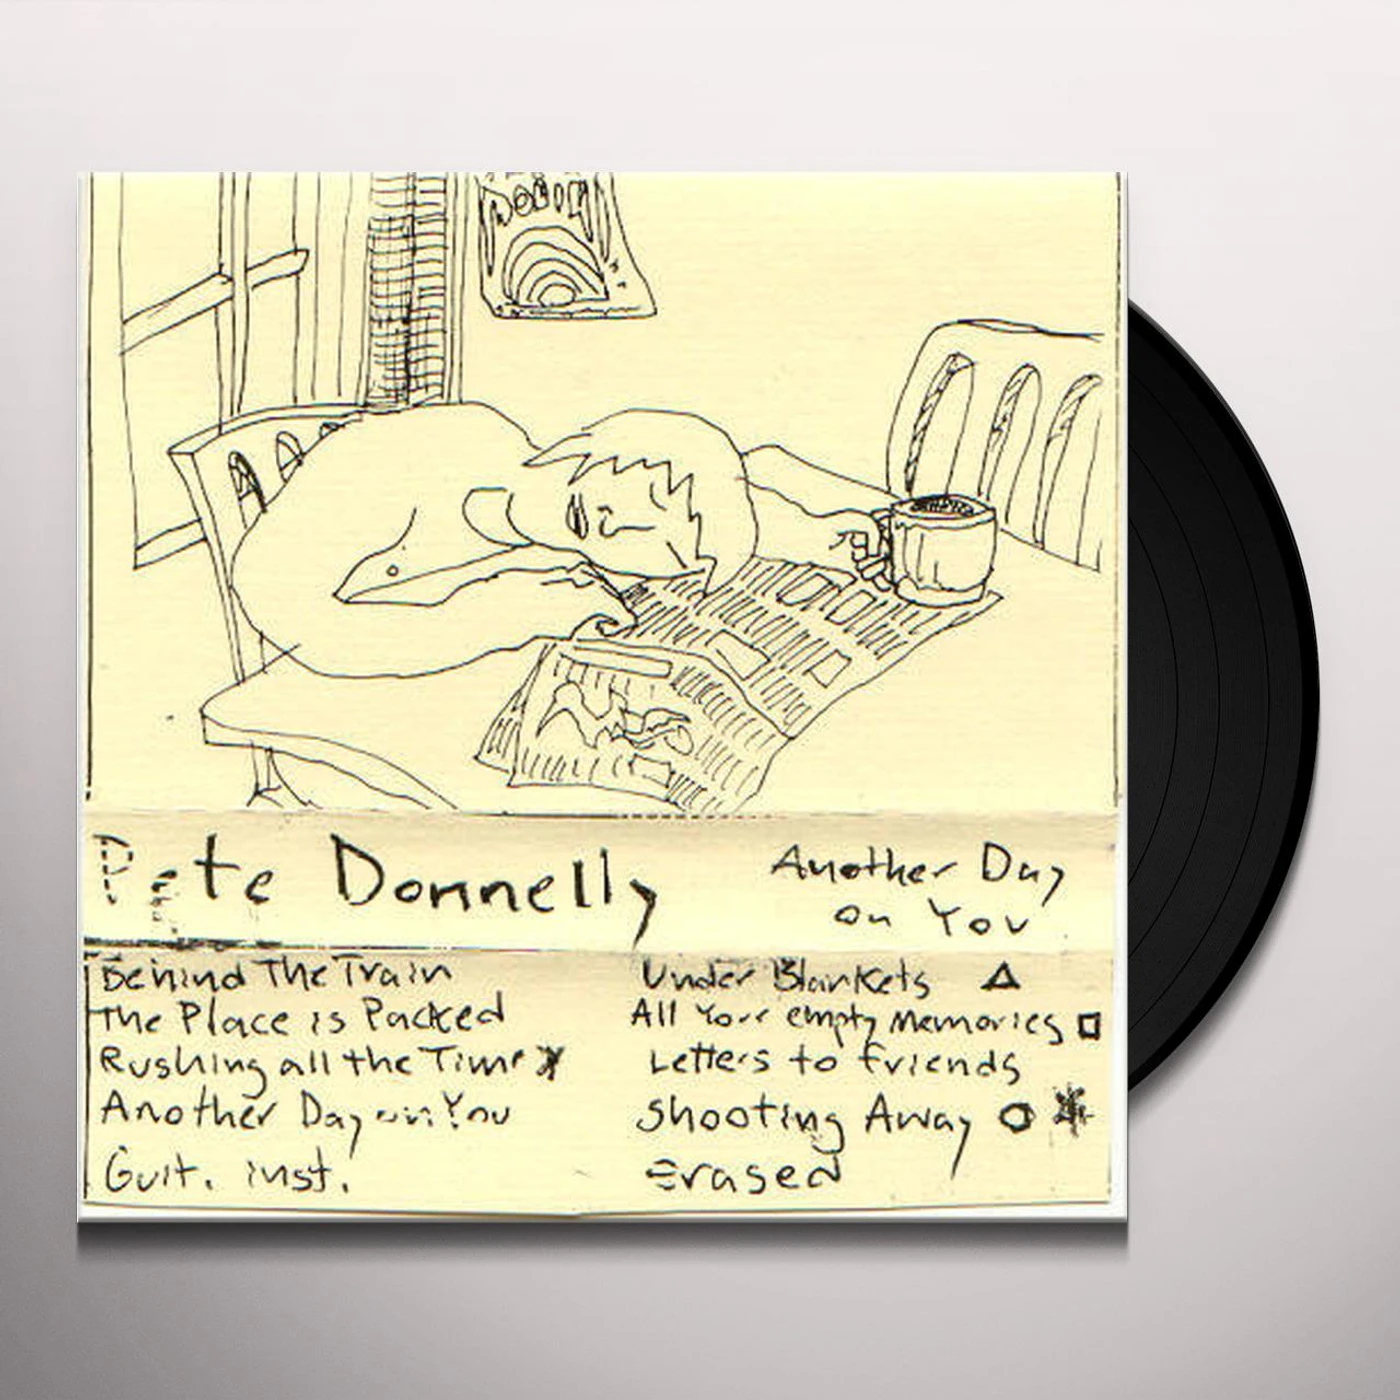 Pete Donnelly
Another Day
on You
Behind The Train
The Place is Packed
Rushing all the Time
Another Day on You
Guit. inst.
Under Blankets
All Your empty Memories
Letters to friends
Shooting Away
Erased